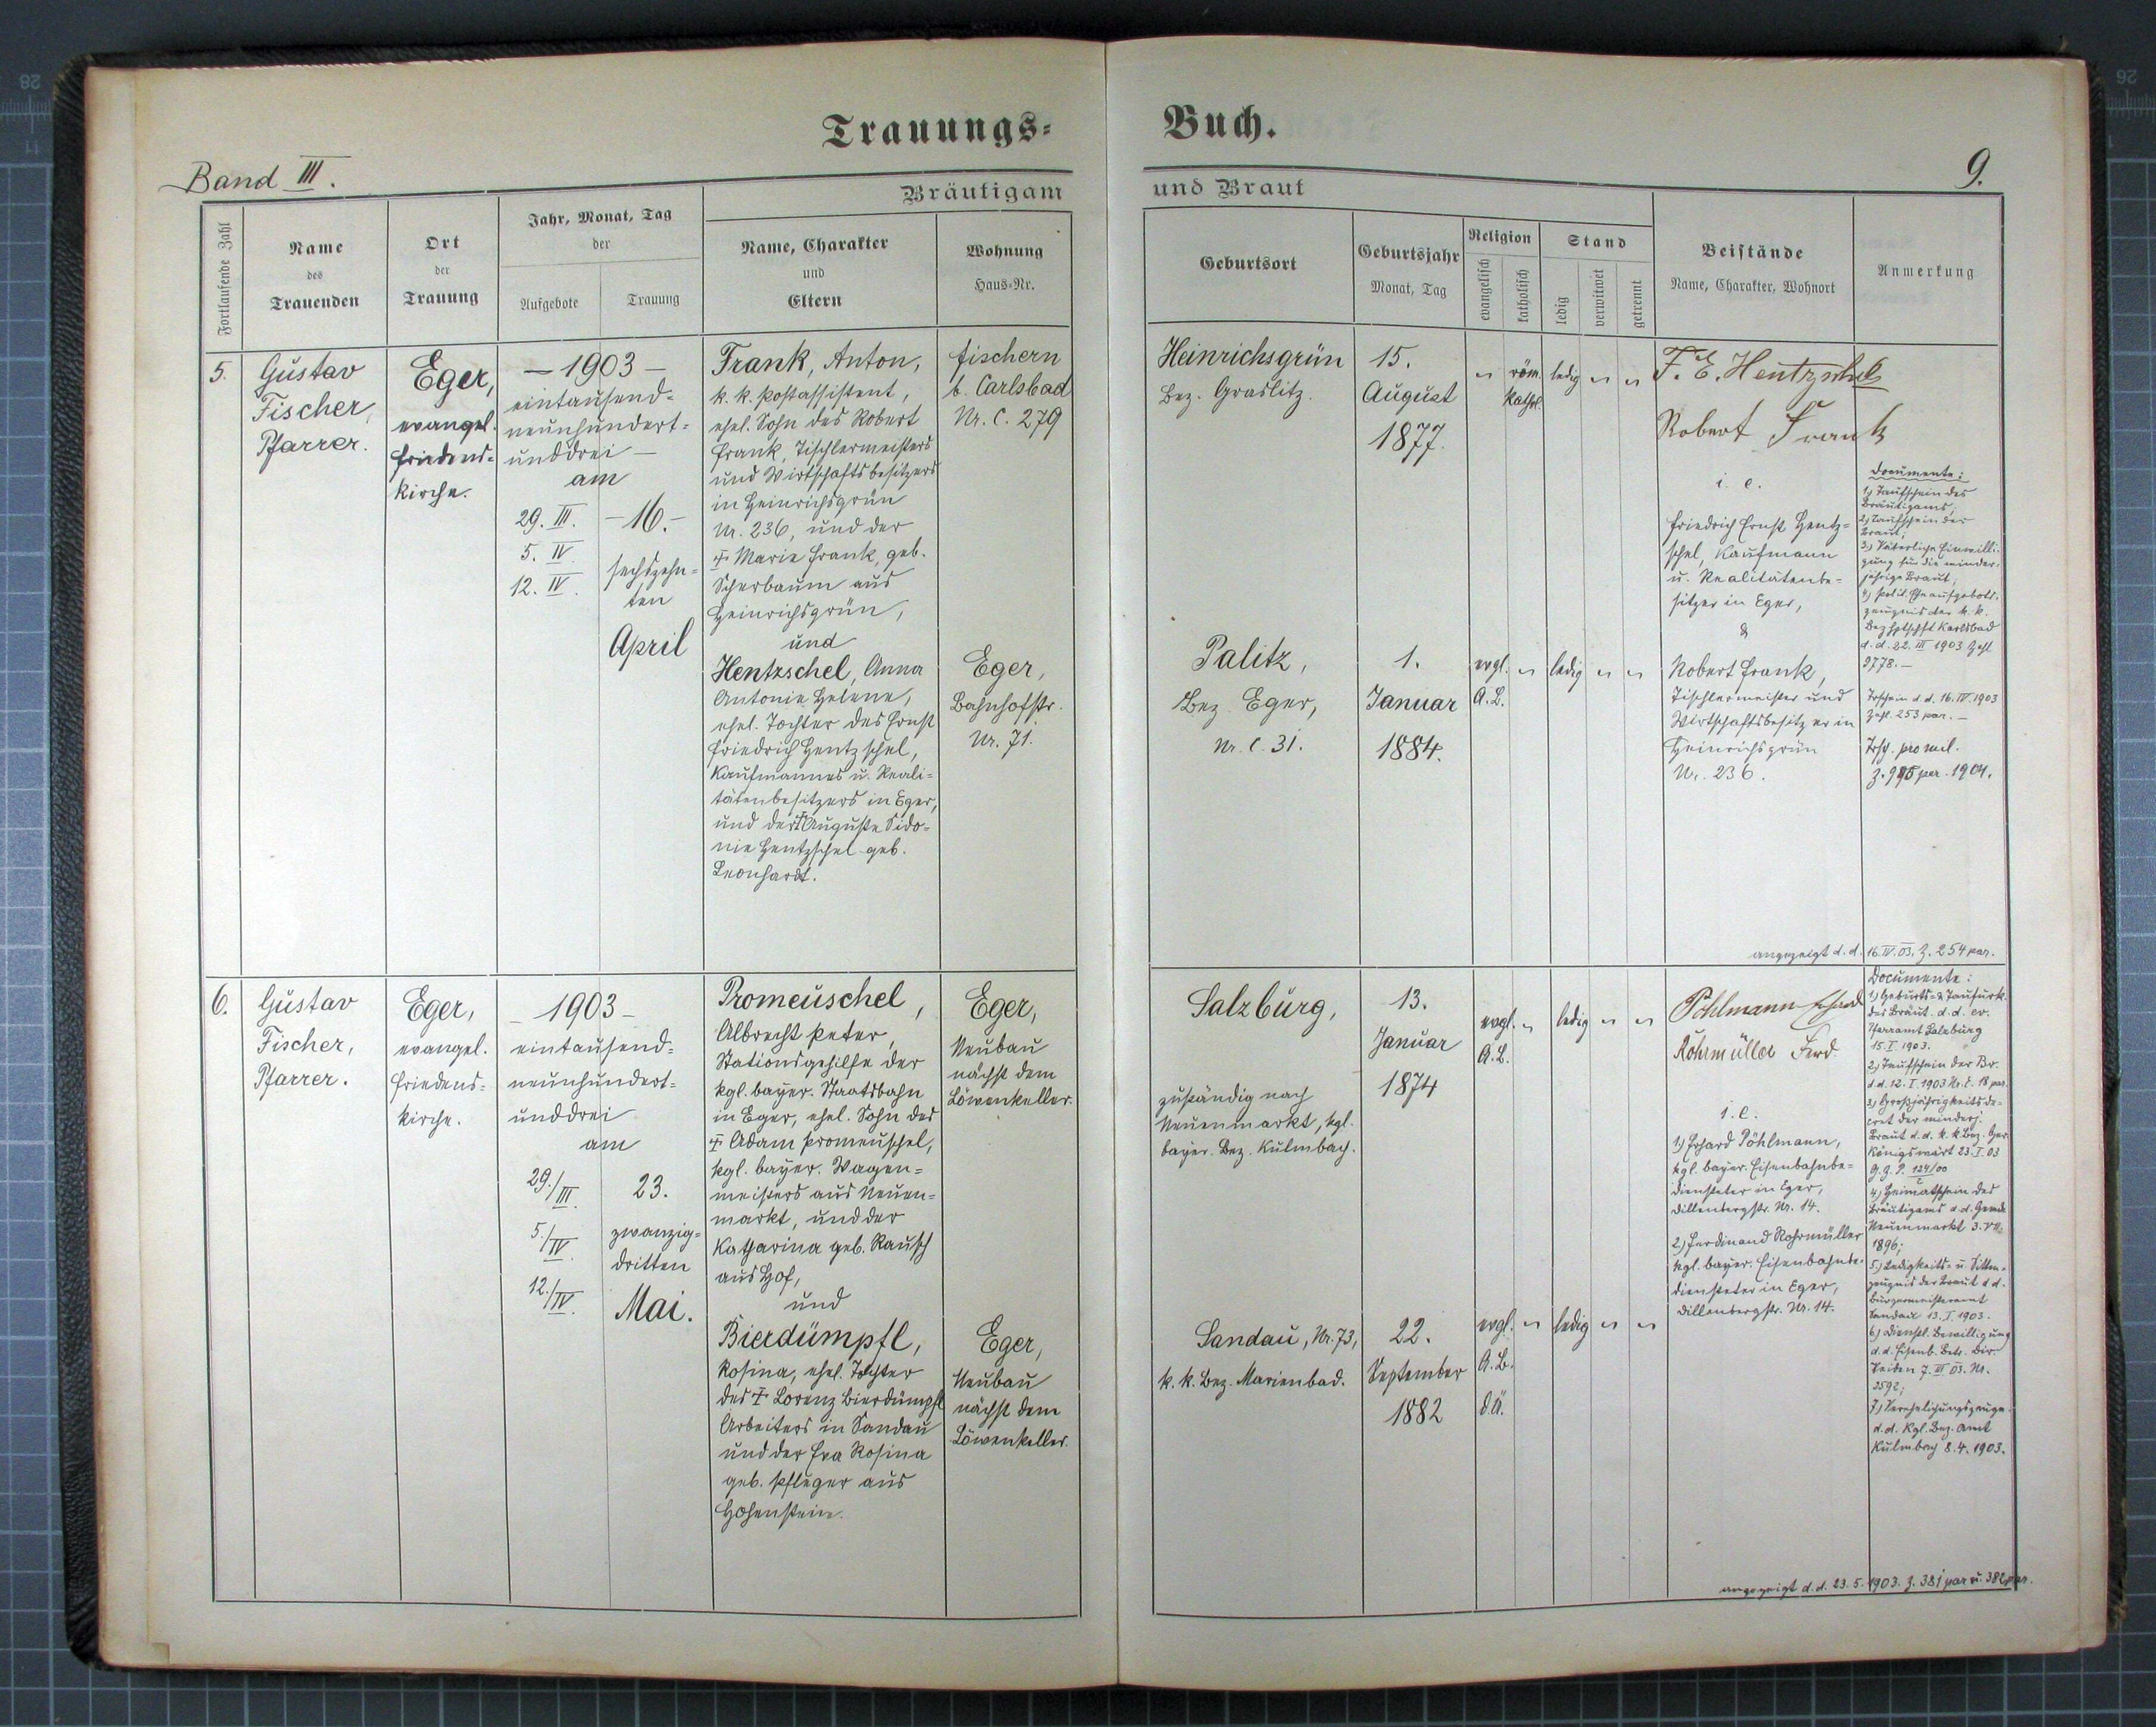 Trauungs=
Buch.
Band III.
9.
Bräutigam
und Braut
Fortlaufende Zahl
Name
des
Trauenden
Ort
der
Trauung
Jahr, Monat, Tag
der
Aufgebote
Trauung
Name, Charakter
und
Eltern
Wohnung
Haus=Nr.
Geburtsort
Geburtsjahr
Monat, Tag
Religion
evangelisch
katholisch
Stand
ledig
verwitwet
getrennt
Beistände
Name, Charakter, Wohnort
Anmerkung
5.
Gustav
Fischer,
Pfarrer.
Eger,
evangel.
Friedens=
kirche.
– 1903 –
eintausend=
neunhundert=
unddrei –
am
29. III.
5. IV
12. IV.
– 16. –
sechszehn=
ten
April
Frank, Anton,
k. k. Postassistent,
ehel. Sohn des Robert
Frank, Tischlermeisters
und Wirtschaftsbesitzers
in Heinrichsgrün
Nr. 236, und der
† Marie Frank, geb.
Scherbaum aus
Heinrichsgrün,
und
Hentzschel, Anna
Antonie Helene,
ehel. Tochter des Ernst
Friedrich Hentzschel,
Kaufmannes u. Reali=
tätenbesitzers in Eger,
und der † Auguste Sido=
nie Hentzschel geb.
Leonhardt.
Fischern
b. Carlsbad
Nr. C. 279
Eger,
Bahnhofstr.
Nr. 71.
Heinrichsgrün
Bez. Graslitz.
15.
August
1877.
„ röm. kathol.
ledig „ „
Palitz,
Bez. Eger,
Nr. C. 31.
1.
Januar
1884.
evgl. „
A. B.
ledig „ „
F. E. Hentzschel
Robert Frank
i. e.
Friedrich Ernst Hentz=
schel, Kaufmann
u. Realitätenbe=
sitzer in Eger,
&
Robert Frank,
Tischlermeister und
Wirtschaftsbesitzer in
Heinrichsgrün
Nr. 236.
Documente:
1.) Taufschein des
Bräutigams,
2.) Taufschein der
Braut;
3.) Väterliche Einwilli=
gung für die minder=
jährige Braut;
4.) polit. Eheaufgebots=
zeugnis der k. k.
Bezhptschft Karlsbad
d. d. 22. III 1903 Zahl
9778. –
Trschein d. d. 16. IV. 1903
Zahl. 253 par. –
Trsch. pro mil.
Z. 995 par. 1904.
angezeigt d. d. 16. IV. 03. Z. 254 par.
6.
Gustav
Fischer,
Pfarrer.
Eger,
evangel.
Friedens=
kirche.
– 1903 –
eintausend=
neunhundert=
unddrei
am
29./III.
5./IV.
12./IV.
23.
zwanzig=
dritten
Mai.
Promeuschel,
Albrecht Peter,
Stationsgehilfe der
kgl. bayer. Staatsbahn
in Eger, ehel. Sohn des
† Adam Promeuschel,
kgl. bayer. Wagen=
meisters aus Neuen=
markt, und der
Katharina geb. Rausch
aus Hof,
und
Bierdümpfl,
Rosina, ehel. Tochter
des † Lorenz Bierdümpfl
Arbeiters in Sandau
und der Eva Rosina
geb. Pfleger aus
Hohenstein.
Eger,
Neubau
nächst dem
Löwenkeller.
Eger,
Neubau
nächst dem
Löwenkeller.
Salzburg,
zuständig nach
Neuenmarkt, kgl.
bayer. Bez. Kulmbach.
13.
Januar
1874
evgl. „
A. B.
ledig „ „
Sandau, Nr. 73,
k. k. Bez. Marienbad.
22.
September
1882
evgl. „
A. B.
d. Ä.
ledig „ „
Pöhlmann Erhard
Rohrmüller Ferd.
i. e.
1.) Erhard Pöhlmann,
kgl. bayer. Eisenbahnbe=
diensteter in Eger,
Dillenbergstr. Nr. 14.
2.) Ferdinand Rohrmüller
kgl. bayer. Eisenbahnbe=
diensteter in Eger,
Dillenbergstr. Nr. 14.
Documente:
1.) Geburts= & Taufurk.
des Bräut. d. d. ev.
Pfarramt Salzburg
15. I. 1903.
2.) Taufschein der Br.
d. d. 12. I. 1903 Nr. E. 18 par.
3.) Großjährigkeitsde=
cret der minderj.
Braut d. d. k. k. Bez. Ger.
Königswart 23. I. 03
G. Z. P. 124/00
4.) Heimatschein des
Bräutigams d. d. Gemde
Neuenmarkt 3. VII.
1896;
5.) Ledigkeits= u. Sitten=
zeugnis der Braut d. d.
Bürgermeisteramt
Sandau 13. I. 1903.
6.) Dienstl. Bewilligung
d. d. Eisenb. Betr. Dir.
Weiden 7. III 03. Nr.
2592;
7.) Verehelichungszeugn.
d. d. Kgl. Bez. Amt
Kulmbach 8. 4. 1903.
angezeigt d. d. 23. 5. 1903. Z. 381 par u. 382 par.